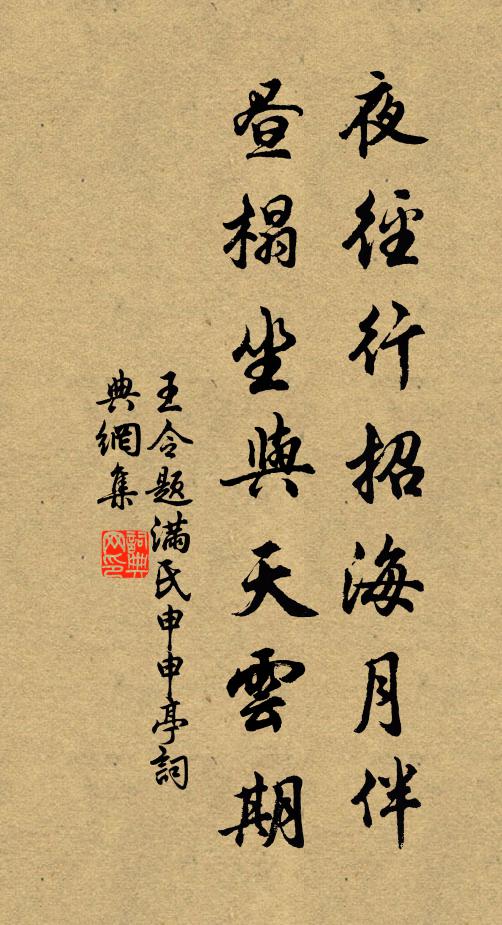 夜徑行招海月伴
晝榻坐與天雲期
王令題滿氏申申亭詞
典網集
詞典
网印